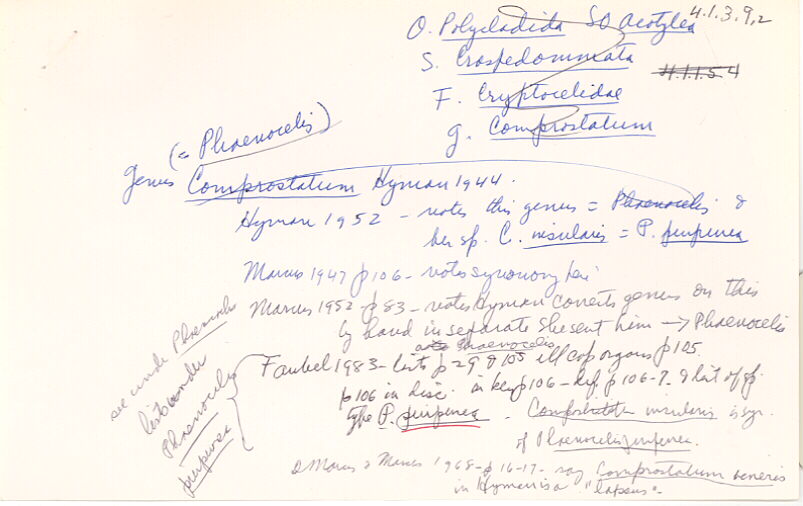 O. Polycladida SO Acotylea 4.1.3.9.2
S. Craspedommata 4.1.1.5.4
F. Cryptocelidae
g. Comprostatum
(= Phaenocelis)
Genus Comprostatum Hyman 1944.
Hyman 1952 - notes this genus = Phaenocelis &
her sp. C. insularis = P. purpurea
Marcus 1947 p 106 - notes synonomy
Marcus 1952 - p 83 - notes Hyman corrects genus on this
by hand in separate she sent him → Phaenocelis
Phaenocelis
Faubel 1983 - lists p 29 & 105 ill cop organs p 105.
p 106 in disc. in key p 106 - def. p 106-7. & list of sp.
type P. purpurea. insularis is syn.
of Phaenocelis purpurea.
see under Phaenocelis
list under
Phaenocelis
purpurea
Marcus & Marcus 1968 - p 16-17 - say Comprostatum
in Hyman is a "lapsus".